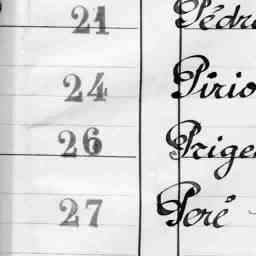 21 Pédr
24 Pirio
26 Prige
27 Peré